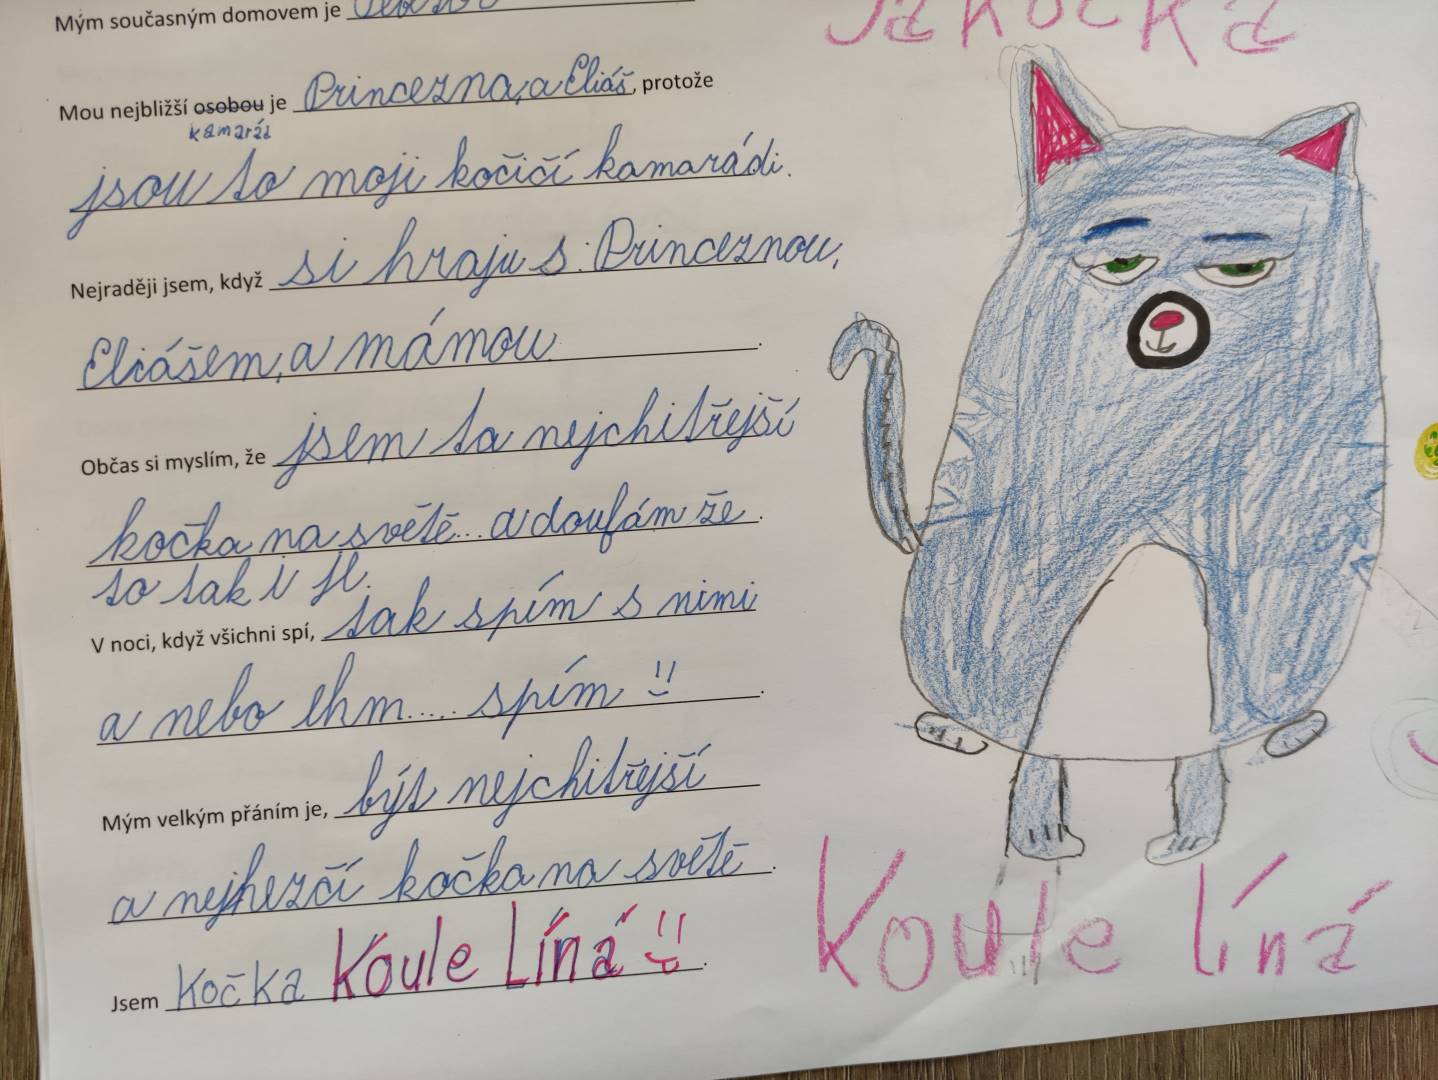 Mým současným domovem je
Já kočka
Mou nejbližší osobou je Princezna, a Eliáš, protože
kamarád
jsou to moji kočičí kamarádi.
Nejraději jsem, když si hraju s: Princeznou,
Eliášem, a mámou.
Občas si myslím, že jsem ta nejchitřejší
kočka na světě... a doufám že.
to tak i je.
V noci, když všichni spí, tak spím s nimi
a nebo ehm..... spím.
Mým velkým přáním je, být nejchitřejší
a nejhezčí kočka na světě.
Jsem kočka Koule Líná.
Koule líná